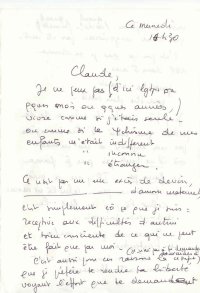 Ce mercredi
16h30
Claude,
Je ne peux pas (d'ici lgtps ou
qques mois ou qques années)
vivre comme si j'étais seule -
ou comme si le 4ème de mes
enfants m'était indifférent
" inconnu
" étranger.
Ce n'est pas un excès de devoir,
d'amour maternel
c'est simplement ce que je suis :
réceptive aux difficultés d'autrui
et bien consciente de ce qui ne peut
être fait que par moi -
C'est aussi pour ces raisons
que je préfère te rendre ta liberté
voyant l'effort que te demande